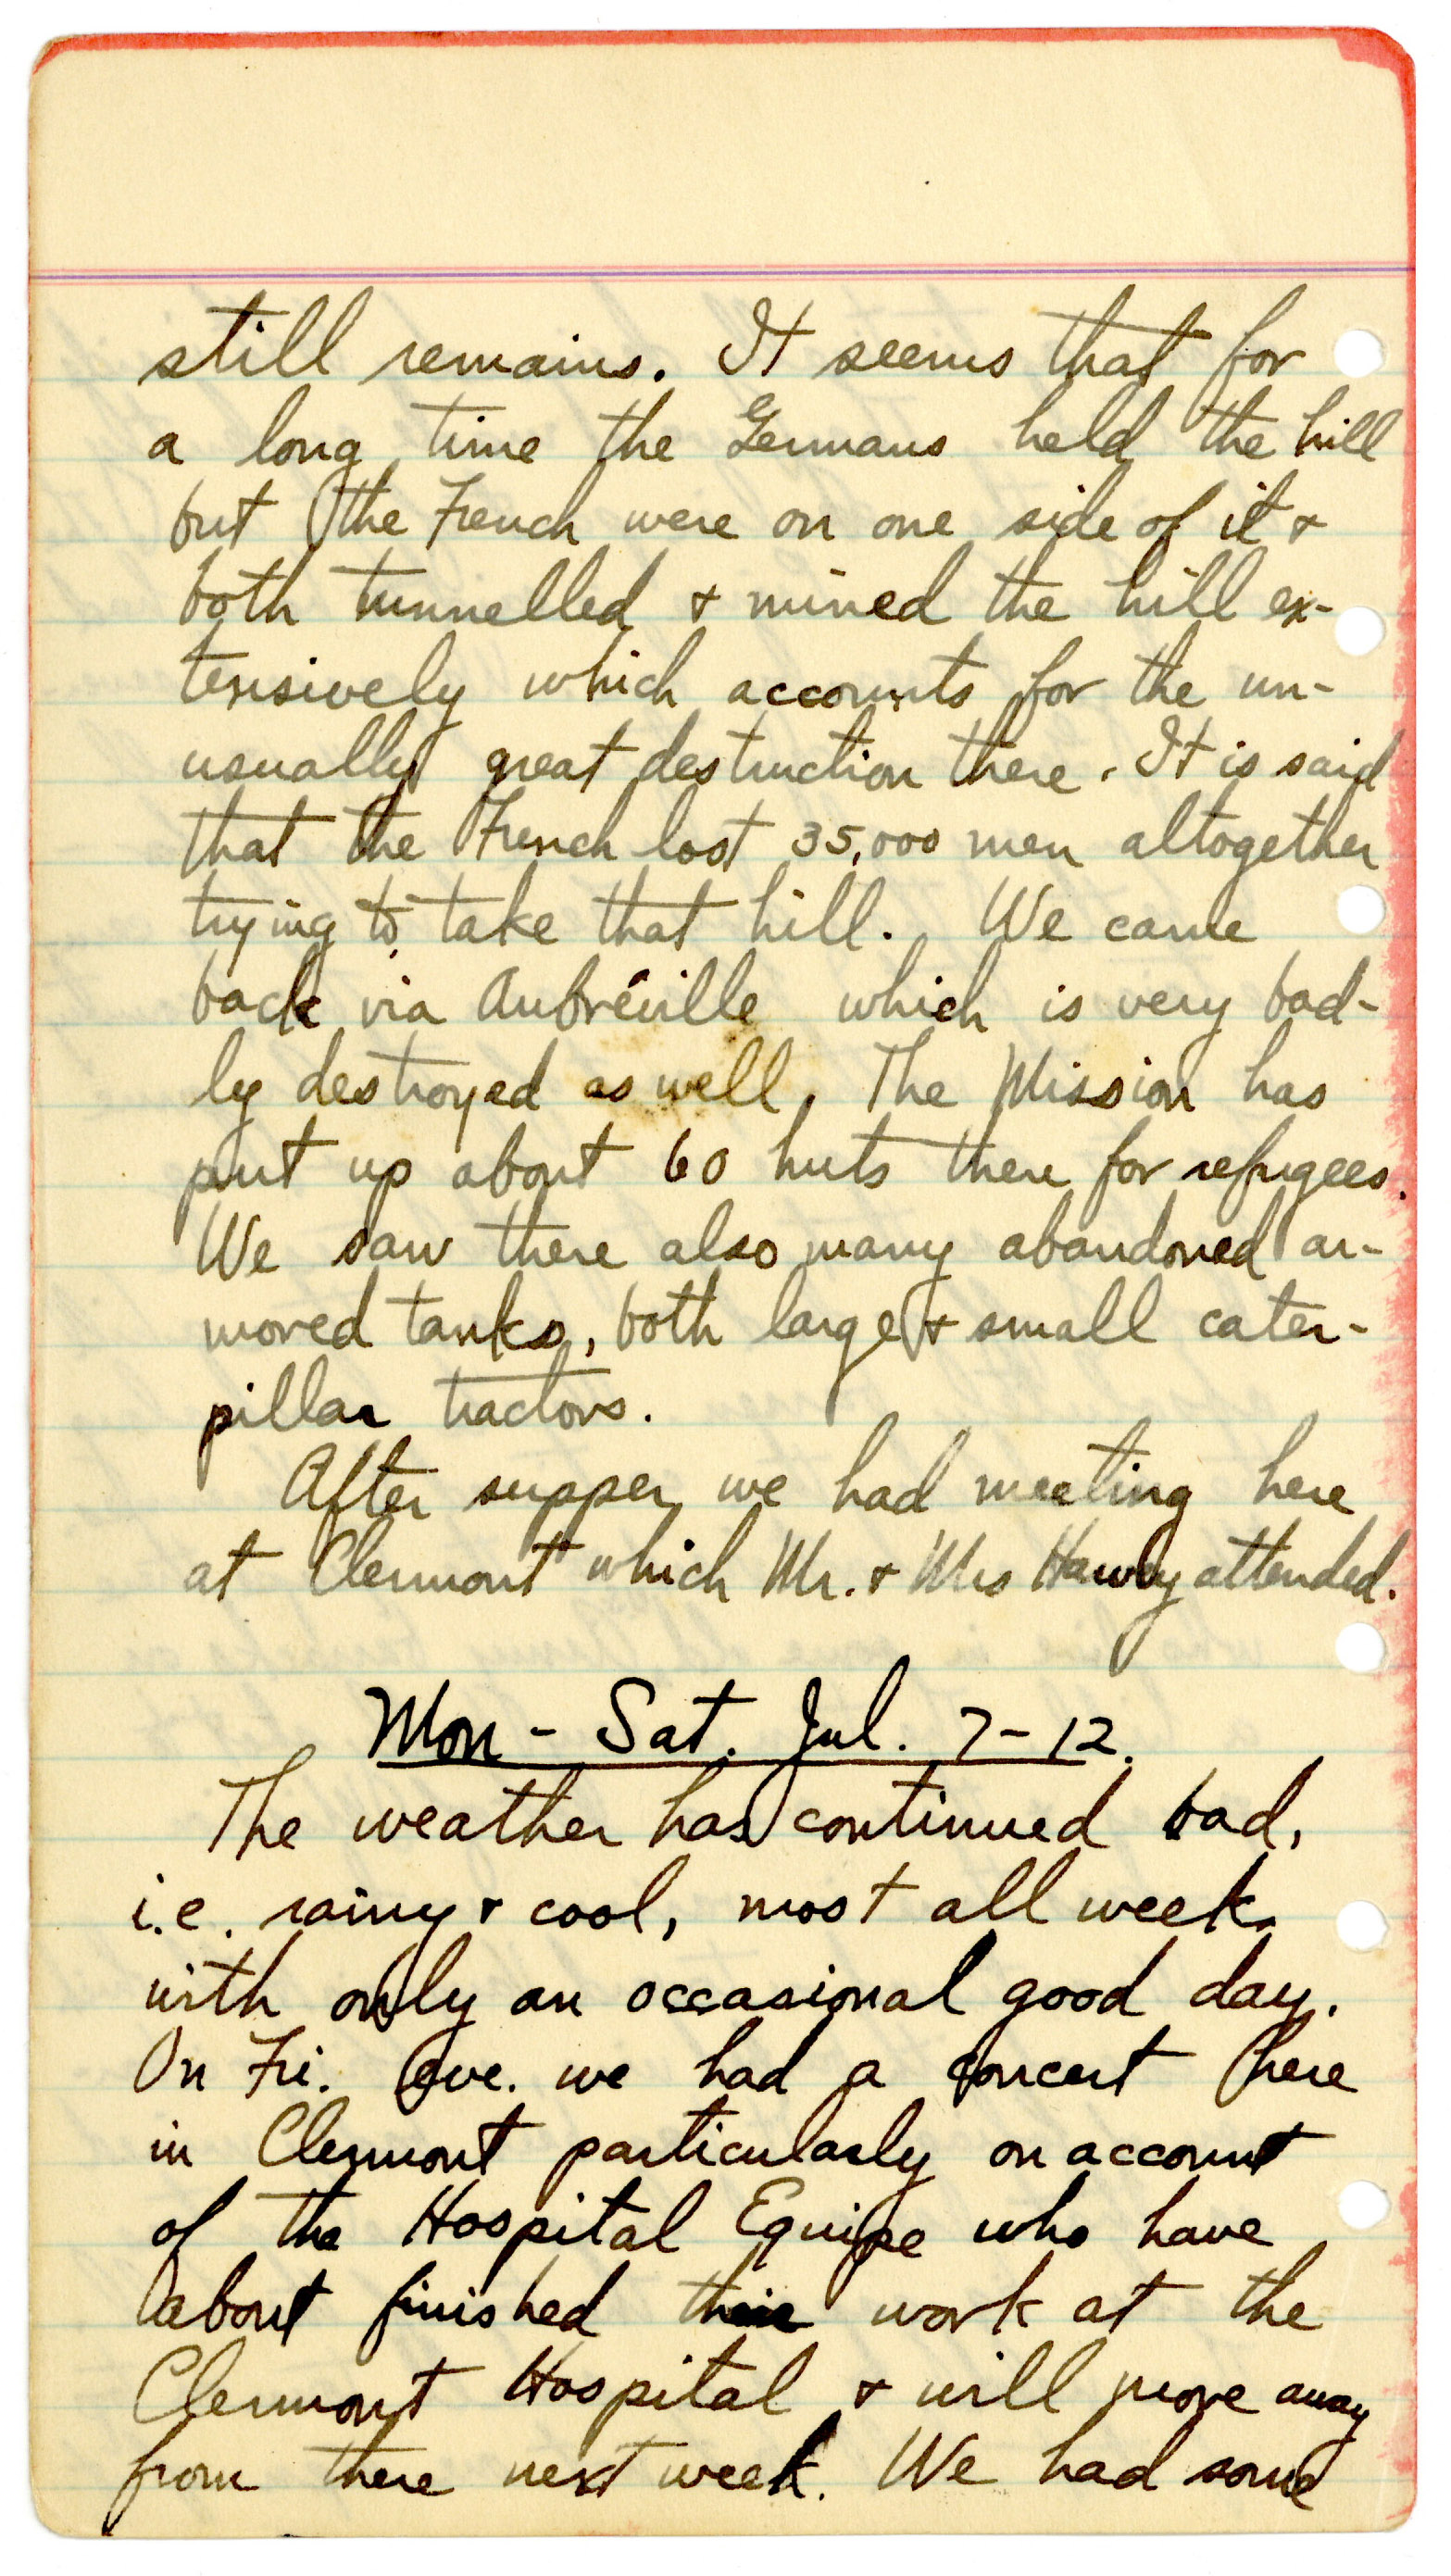 still remains. It seems that for
a long time the Germans held the hill
but the French were on one side of it &
both tunnelled & mined the hill ex-
tensively which accounts for the un-
usually great destruction there. It is said
that the French lost 35,000 men altogether
trying to take that hill. We came
back via Aubréville which is very bad-
ly destroyed as well. The Mission has
put up about 60 huts there for refugees.
We saw there also many abandoned ar-
mored tanks, both large & small cater-
pillar tractors.
After supper we had meeting here
at Clermont which Mr. & Mrs Hawley attended.
Mon - Sat. Jul. 7-12.
The weather has continued bad,
i.e. rainy & cool, most all week
with only an occasional good day.
On Fri. eve. we had a concert here
in Clermont particularly on account
of the Hospital Equipe who have
about finished their work at the
Clermont Hospital & will move away
from there next week. We had some